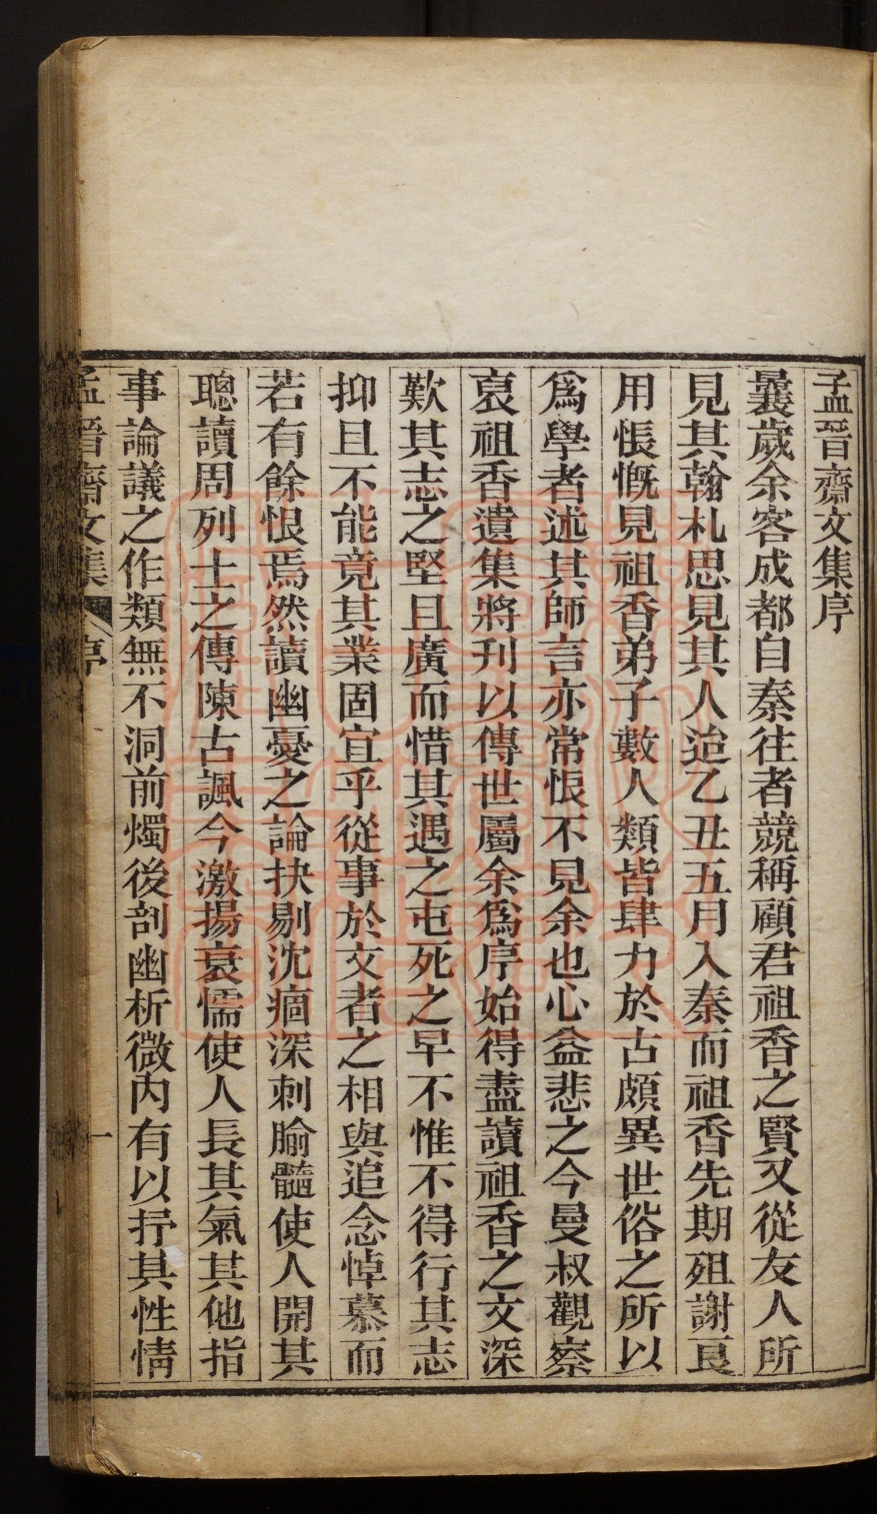 孟晉齋文集序
曩歲余客成都自秦往者競稱顧君祖香之賢又從友人所
見其翰札思見其人迨乙丑五月入秦而祖香先期殂謝良
用悵慨見祖香弟子數人類皆肆力於古頗異世俗之所以
爲學者述其師言亦常悵不見余也心益悲之今曼叔觀察
裒祖香遺集將刊以傳世屬余爲序始得盡讀祖香之文深
歎其志之堅且廣而惜其遇之屯死之早不惟不得行其志
抑且不能竟其業固宜乎從事於文者之相與追念悼慕而
若有餘恨焉然讀幽憂之論抉剔沈痼深刺腧髓使人開其
聰讀周列士之傳陳古諷今激揚衰懦使人長其氣其他指
事論議之作類無不洞前燭後剖幽析微內有以抒其性情
孟晉齋文集 序 一